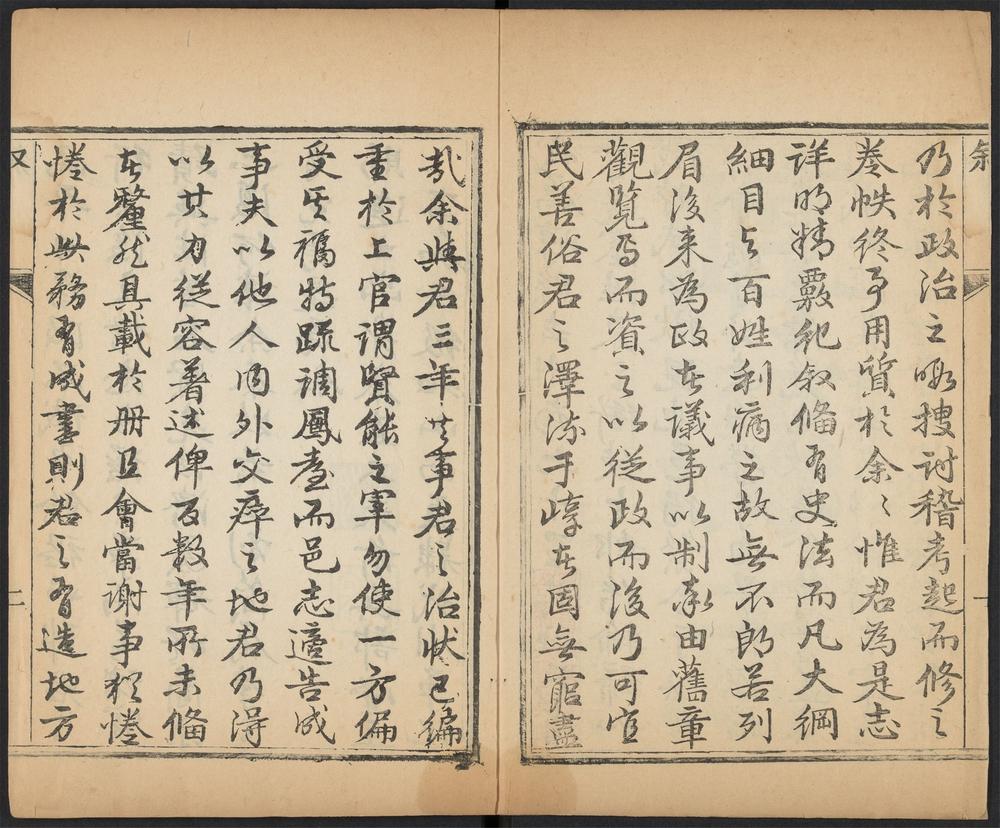 乃於政治之暇搜討稽考起而修之
卷帙終事用質於余々惟君為是志
詳明精覈紀叙備有史法而凡大綱
細目与百姓利病之故無不朗若列
眉後来為政者議事以制率由舊章
觀覧焉而資之以從政而後乃可宜
民善俗君之澤流于崞者固無窮盡
哉余與君三年共事君之治状已編
重於上官謂賢能之軍勿使一方偏
受其福特疏調鳳臺而邑志適告成
事夫以他人内外交瘁之地君乃得
以其力從容著述俾百数年所未備
者釐然具載於册且會當謝事猶惓
惓於此務有成書則君之有造地方
二